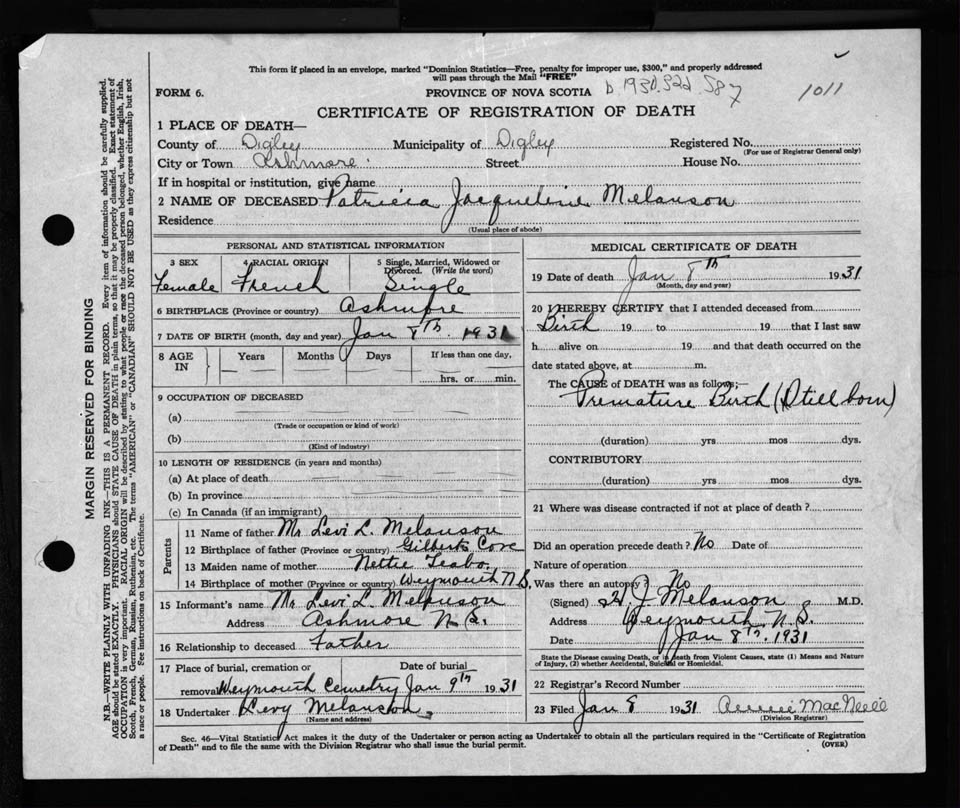 This form if placed in an envelope, marked "Dominion Statistics—Free, penalty for improper use, $300," and properly addressed
will pass through the Mail "FREE"
FORM 6.
PROVINCE OF NOVA SCOTIA
1011
CERTIFICATE OF REGISTRATION OF DEATH
1 PLACE OF DEATH—
County of Digby Municipality of Digby Registered No.
(For use of Registrar General only)
City or Town Ashmore Street House No.
If in hospital or institution, give name
2 NAME OF DECEASED Patricia Jacqueline Melanson
Residence
(Usual place of abode)
PERSONAL AND STATISTICAL INFORMATION
3 SEX 4 RACIAL ORIGIN 5 Single, Married, Widowed or
Divorced. (Write the word)
Female French Single
6 BIRTHPLACE (Province or country) Ashmore
7 DATE OF BIRTH (month, day and year) Jan 8th. 1931
8 AGE IN Years Months Days If less than one day,
hrs. or min.
9 OCCUPATION OF DECEASED
(a)
(Trade or occupation or kind of work)
(b)
(Kind of industry)
10 LENGTH OF RESIDENCE (in years and months)
(a) At place of death
(b) In province
(c) In Canada (if an immigrant)
Parents
11 Name of father Mr Levi L. Melanson
12 Birthplace of father (Province or country) Gilberts Cove
13 Maiden name of mother Nettie
14 Birthplace of mother (Province or country) Weymouth N.S.
15 Informant's name Mr Levi L. Melanson
Address Ashmore N.S.
16 Relationship to deceased Father
17 Place of burial, cremation or Date of burial
removal Weymouth Cemetry Jan 9th 1931
18 Undertaker Levy Melanson
(Name and address)
MEDICAL CERTIFICATE OF DEATH
19 Date of death Jan 8th 1931
(Month, day and year)
20 I HEREBY CERTIFY that I attended deceased from
Birth 19 to 19 that I last saw
h alive on 19 and that death occurred on the
date stated above, at m.
The CAUSE of DEATH was as follows;—
Premature Birth (Still born)
(duration) yrs mos dys.
CONTRIBUTORY
(duration) yrs mos dys.
21 Where was disease contracted if not at place of death?
Did an operation precede death? No Date of
Nature of operation
Was there an autopsy? No
(Signed) H. J. Melanson M.D.
Address Weymouth N.S.
Date Jan 8th. 1931
State the Disease causing Death, or in death from Violent Causes, state (1) Means and Nature
of Injury, (2) whether Accidental, Suicidal or Homicidal.
22 Registrar's Record Number
23 Filed Jan 8 1931 MacNeill
(Division Registrar)
Sec. 46—Vital Statistics Act makes it the duty of the Undertaker or person acting as Undertaker to obtain all the particulars required in the "Certificate of Registration
of Death" and to file the same with the Division Registrar who shall issue the burial permit.
(OVER)
MARGIN RESERVED FOR BINDING
N.B.—WRITE PLAINLY WITH UNFADING INK—THIS IS A PERMANENT RECORD. Every item of information should be carefully supplied.
AGE should be stated EXACTLY. PHYSICIANS should STATE CAUSE OF DEATH in plain terms, so that it may be properly classified. Exact statement of
OCCUPATION is very important. RACIAL ORIGIN will be described by stating to what people or race the deceased person belonged, whether English, Irish,
Scotch, French, German, Russian, Ruthenian, etc. The terms "AMERICAN" or "CANADIAN" SHOULD NOT BE USED as they express citizenship but not
a race or people. See instructions on back of Certificate.